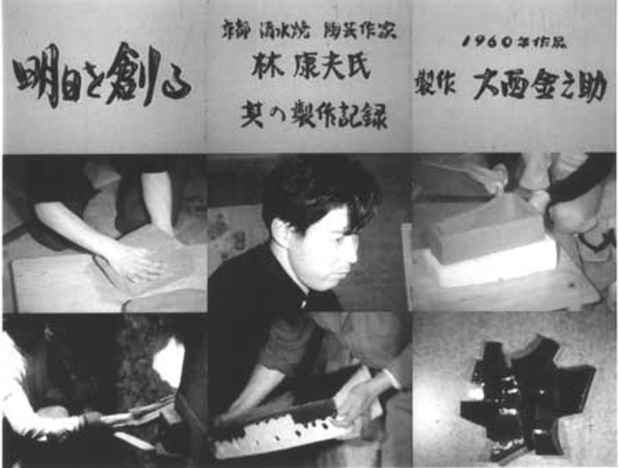 明日を創る
京都 清水焼 陶芸作家
林 康夫氏
其の製作記録
1960年作品
製作 大西金之助